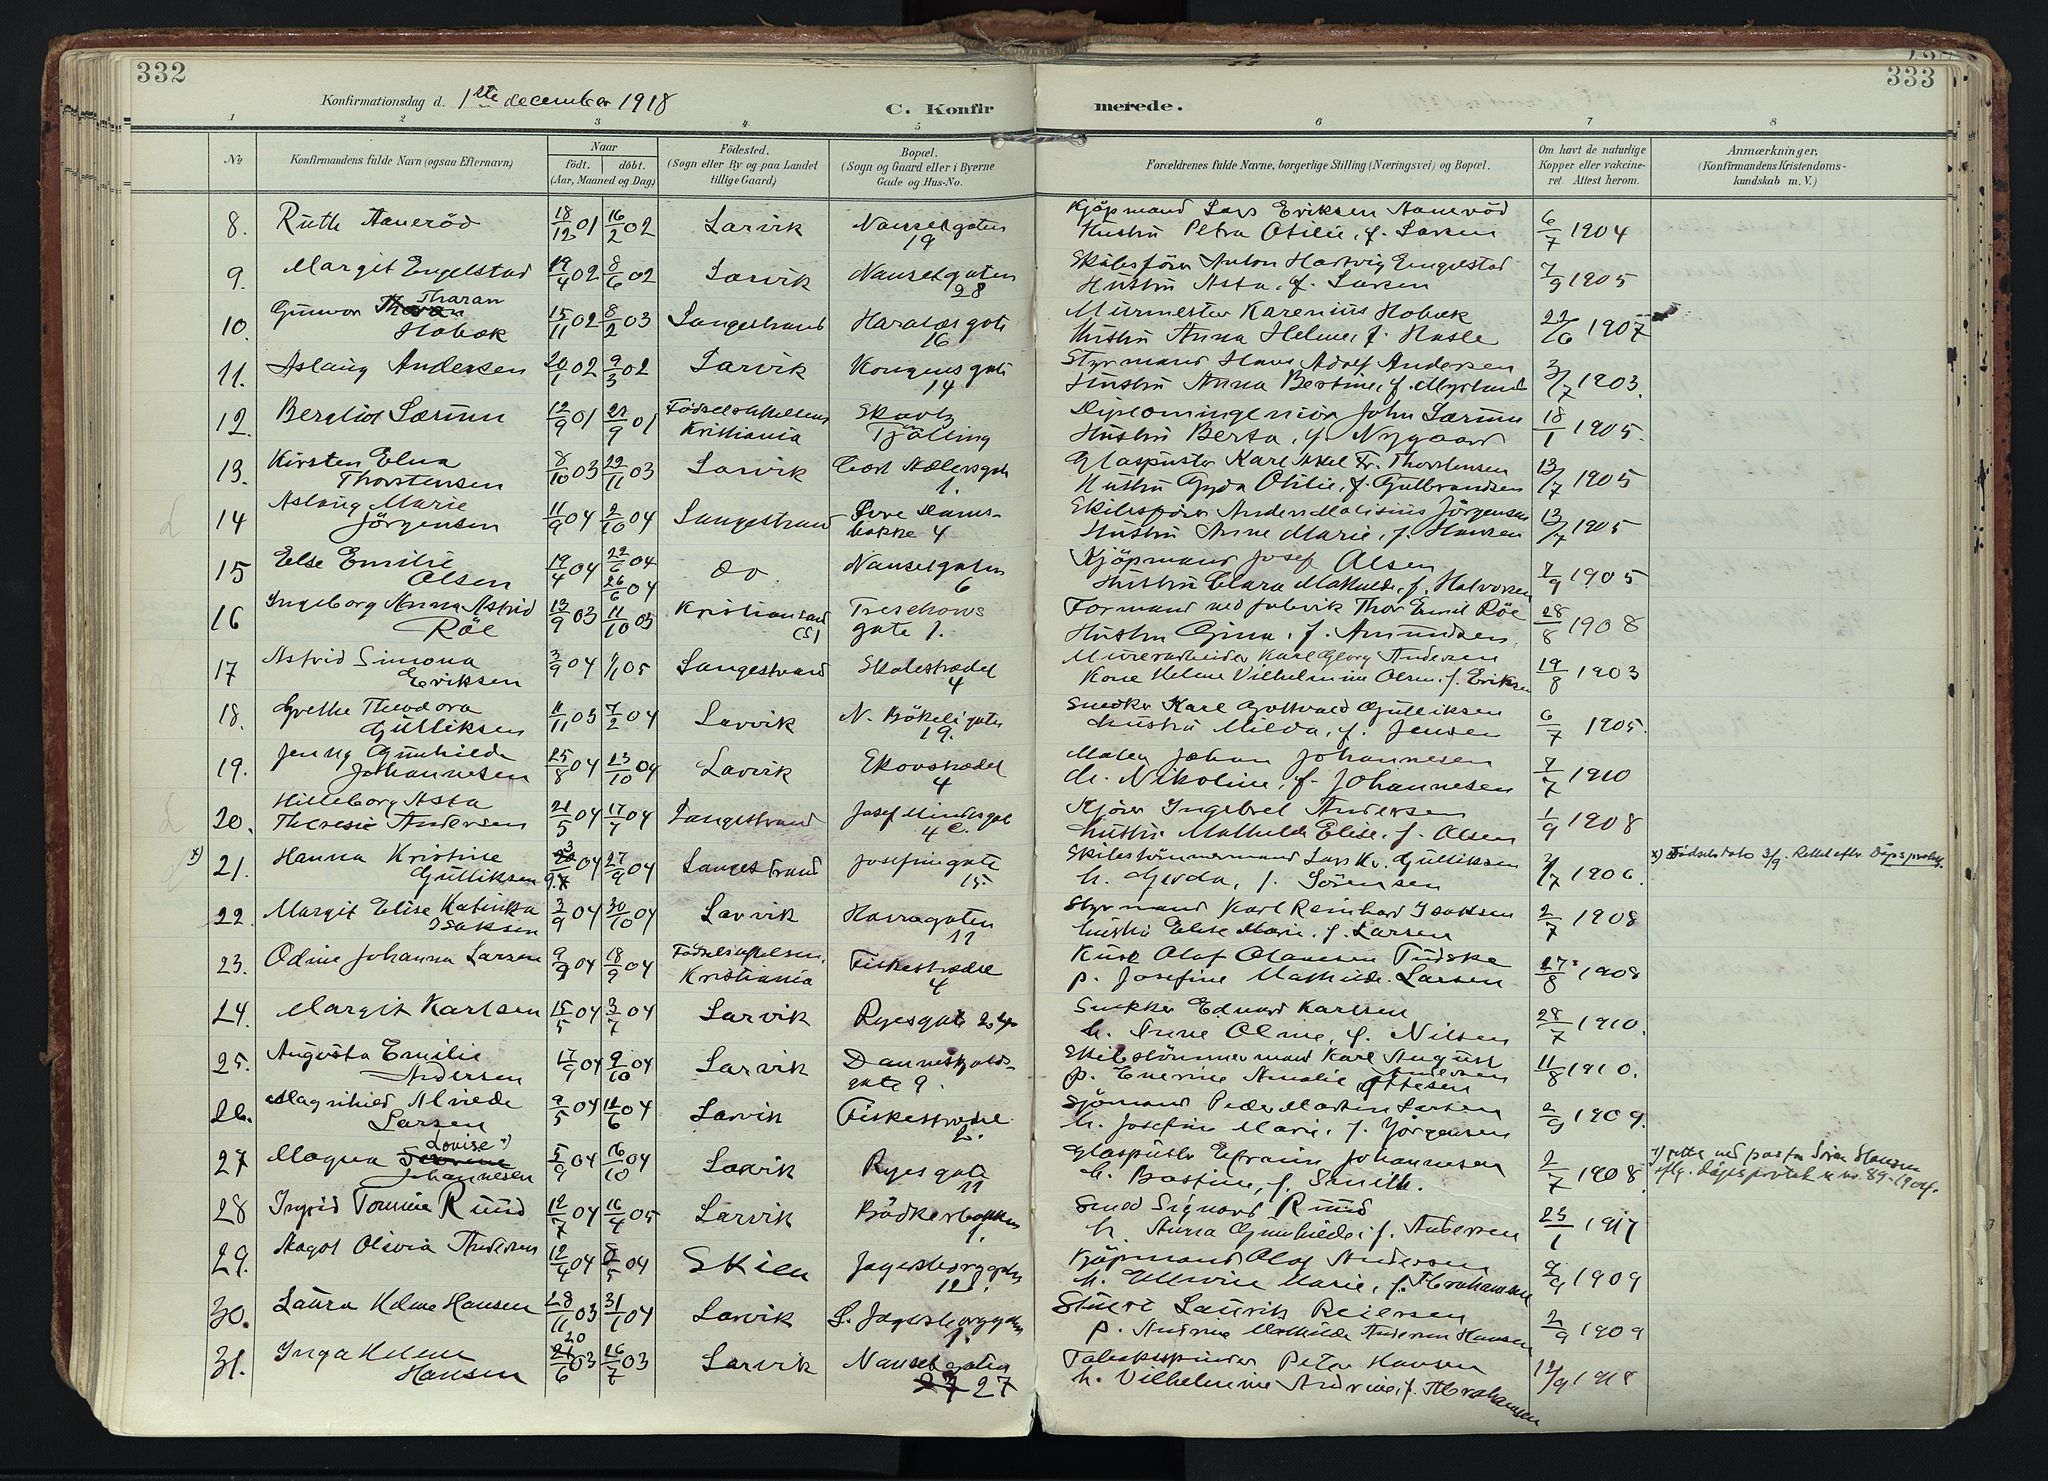 332
333
Konfirmationsdag d. 1ste december 1918
C. Konfirmerede.
1 2 3 4 5 6 7 8
No
Konfirmandens fulde Navn (ogsaa Efternavn)
Naar
født. døbt.
(Aar, Maaned og Dag)
Fødested.
(Sogn eller By og paa Landet
tillige Gaard)
Bopæl.
(Sogn og Gaard eller i Byerne
Gade og Hus-No.
Forældrenes fulde Navne, borgerlige Stilling (Næringsvei) og Bopæl.
Om havt de naturlige
Kopper eller vakcine-
ret. Attest herom.
Anmærkninger,
(Konfirmandens Kristendoms-
kundskab m. V.)
8. Ruth Aanerød 18/12 01 16/2 02 Larvik Nanselgaten 19
Kjøpmand Lars Eriksen Aanerød
Hustru Petra Otilie, f. Larsen 6/7 1904
9. Margit Engelstad 19/4 02 8/6 02 Larvik Nanselgaten 28
Skibsfører Anton Hartvig Engelstad
Hustru Asta, f. Larsen 7/9 1905
10. Gunvor Tharan Hobæk 15/11 02 8/2 03 Langestrand Haraldsgate 16
Murmester Karenius Hobæk
Hustru Anna Helene, f. Hasle 22/6 1907
11. Aslaug Andersen 20/1 02 9/3 02 Larvik Kongensgate 14
Styrmand Hans Adolf Andersen
Hustru Anna Bertine, f. Myrland 3/7 1903.
12. Bergliot Særum 12/9 01 22/9 01 Fødselsstiftelsen Kristiania Tjølling
Diplomingeniør John Særum
Hustru Berta, f. Nygaard 18/1 1905.
13. Kirsten Elna Thorstensen 8/10 03 29/11 03 Larvik 1.
Glaspuster Karl Axel Fr. Thorstensen
Hustru Gyda Otilie, f. Gulbrandsen 13/7 1905
14 Aslaug Marie Jörgensen 11/9 04 2/10 04 Langestrand Øvre Damsbakke 4
Skibsfører Anders Jörgensen
Hustru Anne Marie, f. Hansen 13/7 1905
15 Else Emilie Olsen 19/4 04 22/6 04 26/6 04 do Nanselgaten 6
Kjøpmand Josef Olsen
Hustru Clara Mathilde, f. Halvorsen 7/9 1905
16 Ingeborg Anna Astrid Röe 13/9 03 11/10 03 Kristiansand (S) Treschows gate 1.
Formand ved fabrik Thor Emil Röe
Hustru Gina, f. Amundsen 28/8 1908
17 Astrid Simona Eriksen 3/9 04 1/1 05 Langestrand Skolestrædet 4
Murerarbeider Karl Georg Andersen
Kone Helene Vilhelmine Olsen, f. Eriksen 19/8 1903
18. Grethe Theodora Gulliksen 11/11 03 7/2 04 Larvik N. Bøkeligaten 19.
Snedker Karl Gottvald Gulliksen
hustru Milda, f. Jensen 6/7 1905.
19. Jenny Gunhilde Johannesen 25/8 04 23/10 04 Larvik Skovstrædet 4
Maler Johan Johannesen
h. Nikoline, f. Johannesen 7/7 1910
20. Hilleborg Asta Theresie Andersen 21/5 04 17/7 04 Langestrand 4 c.
Kjører Ingebret Andersen
hustru Mathilde Elise, f. Olsen 1/9 1908
x) 21. Hanna Kristine Gulliksen 3/9 04 27/9 04 Langestrand Josefinegate 15.
Skibstømmermand Lars Kr. Gulliksen
h. Gerda, f. Sörensen 3/7 1906.
x) Fødselsdato 3/9. Rettet efter Dåpsprotok.
22. Margit Elise Katinka Isaksen 3/9 04 30/10 04 Larvik Havnegaten 11
Styrmand Karl Reinhard Isaksen
hustru Elise Marie, f. Larsen 2/7 1908
23. Odine Johanna Larsen 9/9 04 18/9 04 Fødselsstiftelsen, Kristiania Fiskestrædet 4
Kusk Olaf Olavesen Tudske
p. Josefine Mathilde Larsen 27/8 1908
24. Margit Karlsen 15/5 04 3/7 04 Larvik Ryesgate
Snekker Edvard Karlsen
f. Nilsen 28/7 1910.
25. Augusta Emilie Andersen 17/9 04 9/10 04 Larvik Danneskjoldsgate 9.
Skibstömmermand Karl August Andersen
p. Enevine Amalie Ottesen 11/8 1910.
26. Magnhild Alvede Larsen 9/5 04 12/6 04 Larvik Fiskestrædet 2.
Sjömand Peder Martin Larsen
h. Josefine Marie, f. Jörgensen 2/9 1909.
27 Magna Louise x) Johannesen 5/9 04 16/10 04 Larvik Ryesgate 11
Glaspuster Efraim Johannesen
h. Bastine, f. Smith. 2/7 1908.
x) rettet ved pastor Sören Hansen
eftg. Dåpsprotok u no. 89-1904.
28 Ingrid Tomine Ruud 12/7 04 16/4 05 Larvik Bödkerbakken 1.
Smed Sigvard Ruud
h. Anna Gunhilde, f. Andersen 23/1 1917
29. Magot Olivia Andersen 12/4 04 8/5 04 Skien Jegersborggaten 12
Kjøpmand Olaf Andersen
h. Marie, f. Abrahamsen 9/9 1909
30. Laura Helene Hansen 28/11 03 31/1 04 Larvik L. Jegersborggaten 1.
Stuert Laurits Reiersen
p. Andrine Mathilde Andersen Hansen 2/9 1909
31. Inga Helene Hansen 20/6 03 26/7 03 Larvik Nanselgaten 27
Tobaksspinder Peter Hansen
h. Vilhelmine Andrine, f. Abrahamsen 12/9 1918